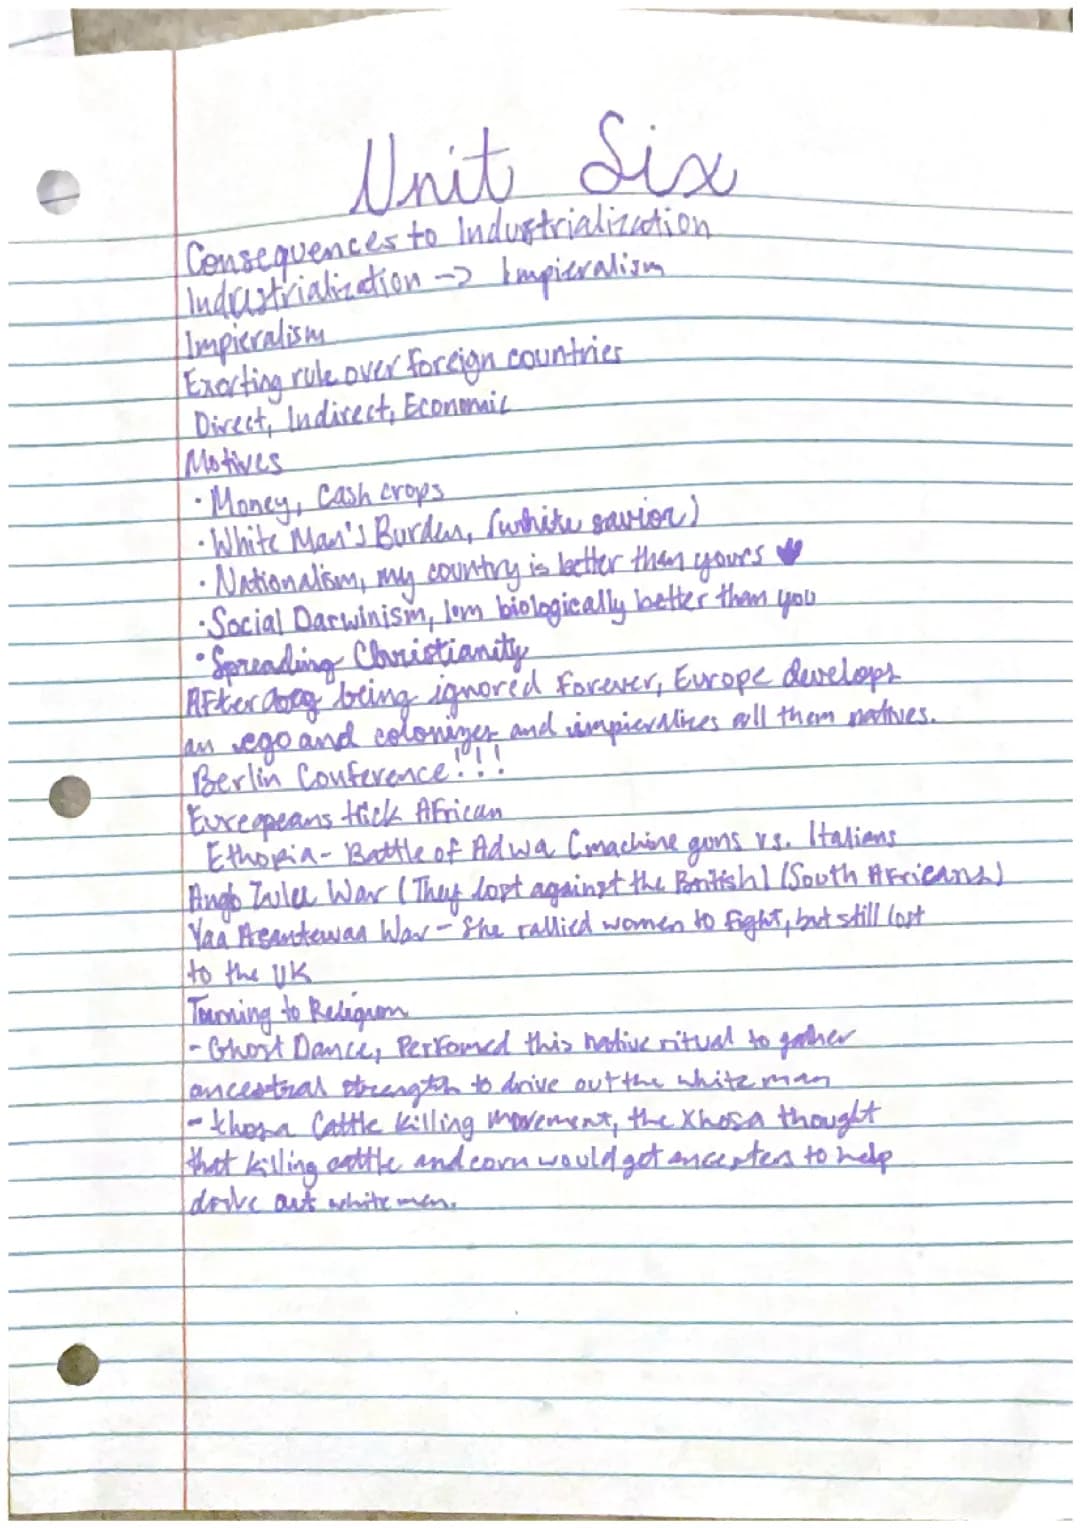 Unit Six
Consequences to Industrialization
Industrialization -> Impieralism
Impieralism
Exorting rule over foreign countries
Direct, Indirect, Economic
Motives
• Money, Cash crops
• White Man's Burden, (white savior)
• Nationalism, my country is better than yours
• Social Darwinism, I'm biologically better than you
• Spreading Christianity
After being ignored forever, Europe develops
an ego and colonizes and impieralizes all them natives.
Berlin Conference!!!
Europeans trick African
Ethopia- Battle of Adwa (machine guns vs. Italians
Anglo Zulu War (They lost against the British) (South Africans)
Yaa Asantewaa War - She rallied women to fight, but still lost
to the UK
Turning to Religion
- Ghost Dance, Perfomed this native ritual to gather
ancestral strength to drive out the white man
- Xhosa Cattle Killing Movement, the Xhosa thought
that killing cattle and corn would get ancesters to help
drive out white men.